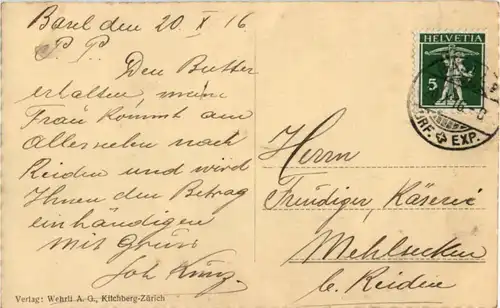 Basel den 20 X 16
P. P.
Den Butter
erhalten, mein
Frau kommt an
Allerseelen nach
Reiden und wird
Ihnen den Betrag
einhändigen
Mit Gruss
Joh Kunz.
Verlag: Wehrli A. G., Kilchberg-Zürich
HELVETIA
5
EXP.
Herrn
Freudiger, Käserei
Mehlsecken
b. Reiden